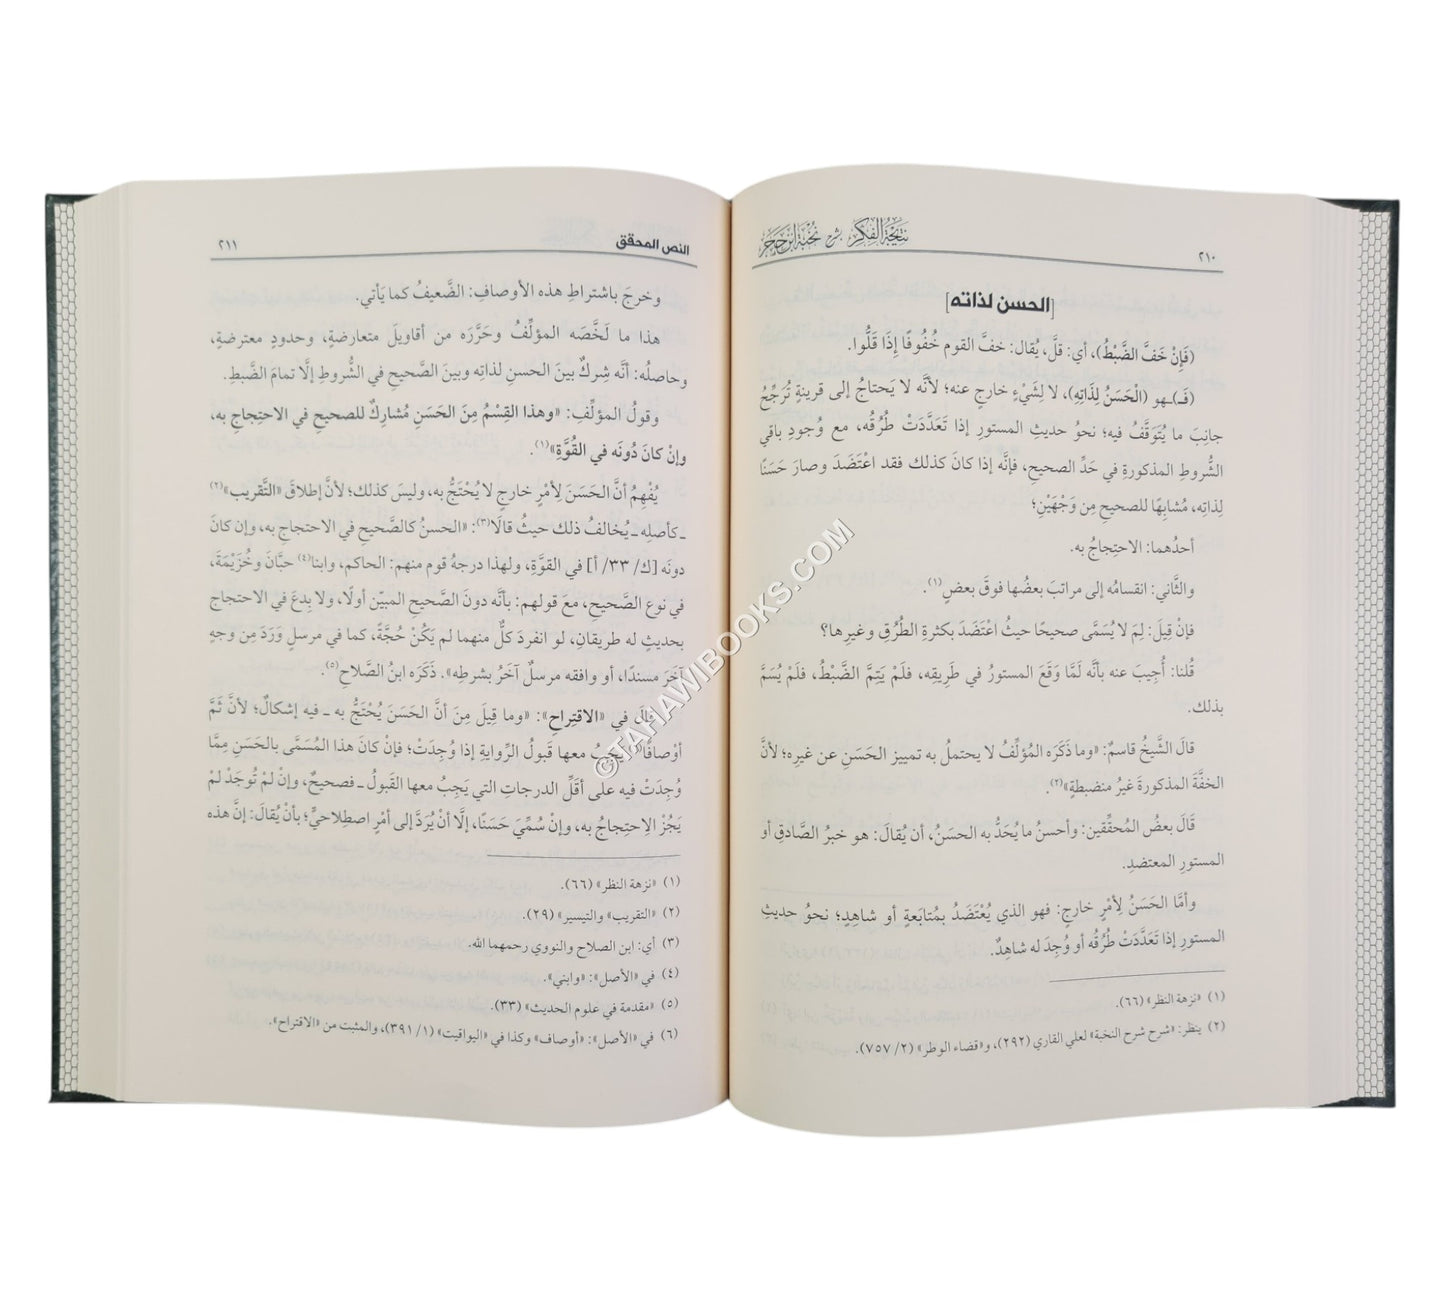 نتيجة الفكر بشرح نخبة ابن حجر
٢١٠
[الحسن لذاته]
(فَإِنْ خَفَّ الضَّبْطُ)، أي: قلَّ، يُقال: خفَّ القوم خُفُوفًا إِذَا قَلُّوا.
(فَـ)ـهو (الْحَسَنُ لِذَاتِهِ)، لا لِشَيْءٍ خارج عنه؛ لأنَّه لا يَحتاجُ إلى قرينةٍ تُرَجِّحُ
جانِبَ ما يُتَوَقَّفُ فيه؛ نحوُ حديثِ المستورِ إذا تَعَدَّدَتْ طُرُقُه، مع وُجودِ باقي
الشُّروطِ المذكورةِ في حَدِّ الصحيحِ، فإنَّه إذا كانَ كذلك فقد اعْتَضَدَ وصارَ حَسَنًا
لِذاتِه، مُشابِهًا للصحيحِ مِن وَجْهَيْنِ؛
أحدُهما: الاحتِجاجُ به.
والثَّاني: انقسامُه إلى مراتبَ بعضُها فوقَ بعضٍ(١).
فإنْ قِيلَ: لِمَ لا يُسَمَّى صحيحًا حيثُ اعْتَضَدَ بكثرةِ الطُّرُقِ وغيرِها؟
قُلنا: أُجِيبَ عنه بأنَّه لَمَّا وَقَعَ المستورُ في طَرِيقِه، فلَمْ يَتِمَّ الضَّبْطُ، فلَمْ يُسَمَّ
بذلك.
قالَ الشَّيخُ قاسمٌ: «وما ذَكَرَه المُؤلِّفُ لا يحتملُ به تمييز الحَسَنِ عن غيرِه؛ لأنَّ
الخفَّةَ المذكورةَ غيرُ منضبطةٍ»(٢).
قَالَ بعضُ المُحقِّقين: وأحسنُ ما يُحَدُّ به الحسَنُ، أن يُقالَ: هو خبرُ الصَّادقِ أو
المستورِ المعتضدِ.
وأمَّا الحَسَنُ لِأَمْرٍ خارجٍ: فهو الذي يُعْتَضَدُ بمُتابَعةٍ أو شاهِدٍ؛ نحوُ حديثِ
المستورِ إذا تَعَدَّدَتْ طُرُقُه أو وُجِدَ له شاهِدٌ.
(١) «نزهة النظر» (٦٦).
(٢) ينظر: «شرح شرح النخبة» لعلي القاري (٢٩٢)، و«قضاء الوطر» (٢/ ٧٥٧).
النص المحقق
٢١١
وخرجَ باشتراطِ هذه الأوصافِ: الضَّعيفُ كما يَأتي.
هذا ما لَخَّصَه المؤلِّفُ وحَرَّرَه من أقاويلَ متعارضةٍ، وحدودٍ معترضةٍ،
وحاصلُه: أنَّه شِركٌ بينَ الحسنِ لذاتِه وبينَ الصَّحيحِ في الشُّروطِ إلَّا تمامَ الضَّبطِ.
وقولُ المؤلِّفِ: «وهذا القِسْمُ مِنَ الحَسَنِ مُشارِكٌ للصحيحِ في الاحتِجاجِ به،
وإنْ كانَ دُونَه في القُوَّةِ»(١).
يُفْهِمُ أنَّ الحَسَنَ لِأَمْرٍ خارجٍ لا يُحْتَجُّ به، وليسَ كذلك؛ لأنَّ إطلاقَ «التَّقريب»(٢)
ـ كأصلِه ـ يُخالفُ ذلك حيثُ قالَا(٣): «الحسنُ كالصَّحيحِ في الاحتجاجِ به، وإن كانَ
دونَه [ك/ ٣٣/ أ] في القوَّةِ، ولهذا درجهُ قوم منهم: الحاكم، وابنا(٤) حبَّانَ وخُزَيْمَةَ،
في نوعِ الصَّحيحِ، معَ قولهم: بأنَّه دونَ الصَّحيحِ المبيّنِ أولًا، ولا بِدعَ في الاحتجاجِ
بحديثٍ له طريقانِ، لو انفردَ كلٌّ منهما لم يَكُنْ حُجَّةً، كما في مرسلٍ وَرَدَ مِن وجهٍ
آخَرَ مسندًا، أو وافقه مرسلٌ آخَرُ بشرطِه». ذَكَرَه ابنُ الصَّلاحِ(٥).
قالَ في «الاقتِراحِ»: «وما قِيلَ مِنَ أنَّ الحَسَنَ يُحْتَجُّ به ـ فيه إشكالٌ؛ لأنَّ ثَمَّ
أوْصافًا(٦) يَجِبُ معها قَبولُ الرِّوايةِ إذا وُجِدَتْ؛ فإنْ كانَ هذا المُسَمَّى بالحَسَنِ مِمَّا
وُجِدَتْ فيه على أقَلِّ الدرجاتِ التي يَجِبُ معها القَبولُ ـ فصحيحٌ، وإنْ لمْ تُوجَدْ لمْ
يَجُزْ الِاحتِجاجُ به، وإنْ سُمِّيَ حَسَنًا، إلَّا أنْ يُرَدَّ إلى أمْرٍ اصطِلاحيٍّ؛ بأنْ يُقالَ: إنَّ هذه
(١) «نزهة النظر» (٦٦).
(٢) «التقريب» والتيسير» (٢٩).
(٣) أي: ابن الصلاح والنووي رحمهما الله.
(٤) في «الأصل»: «وابني».
(٥) «مقدمة في علوم الحديث» (٣٣).
(٦) في «الأصل»: «أوصاف» وكذا في «اليواقيت» (١/ ٣٩١)، والمثبت من «الاقتراح».
©TAHAWIBOOKS.COM